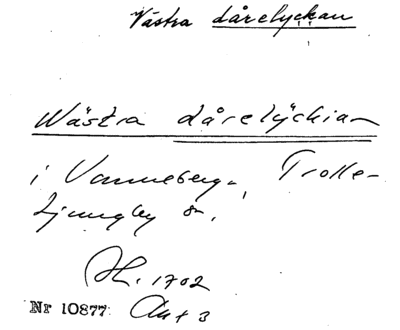 Västra dårelyckan
Wästra dårelÿckian
i Vanneberga, Trolle-
Ljungby sn.
1702
Nr 10877 Akt 3